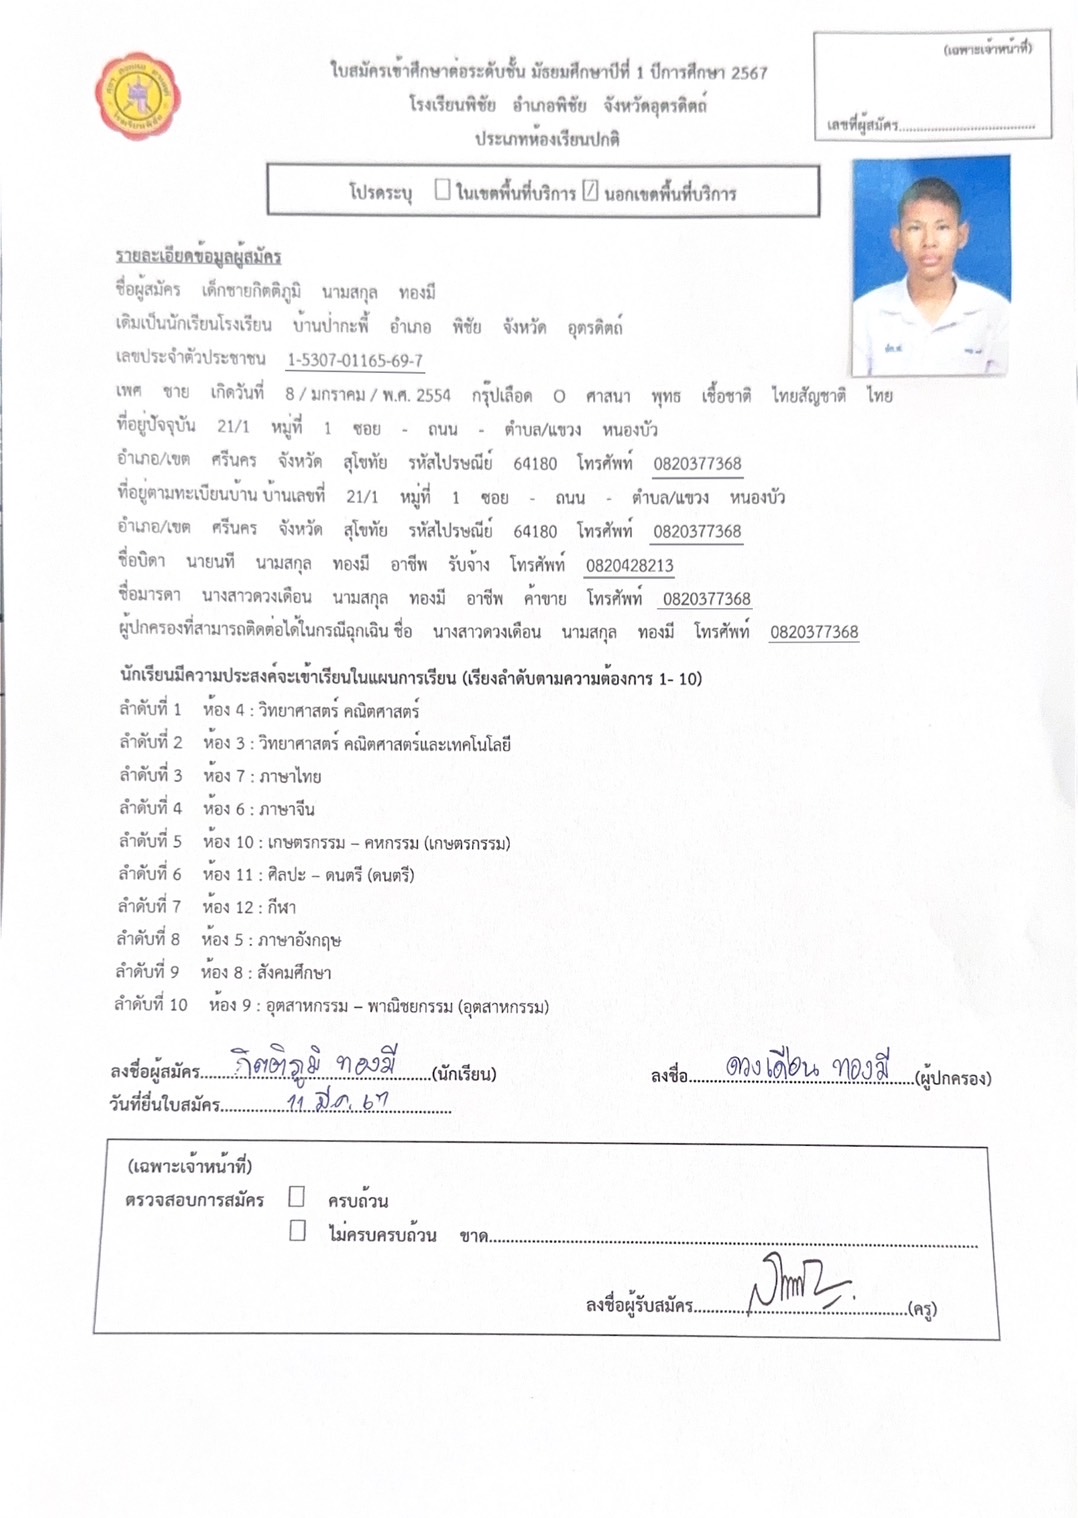 (เฉพาะเจ้าหน้าที่)
ใบสมัครเข้าศึกษาต่อระดับชั้น มัธยมศึกษาปีที่ 1 ปีการศึกษา 2567
โรงเรียนพิชัย อำเภอพิชัย จังหวัดอุตรดิตถ์
เลขที่ผู้สมัคร......................................
ประเภทห้องเรียนปกติ
โปรดระบุ ☐ ในเขตพื้นที่บริการ ☑ นอกเขตพื้นที่บริการ
รายละเอียดข้อมูลผู้สมัคร
ชื่อผู้สมัคร เด็กชายกิตติภูมิ นามสกุล ทองมี
เดิมเป็นนักเรียนโรงเรียน บ้านป่ากะพี้ อำเภอ พิชัย จังหวัด อุตรดิตถ์
เลขประจำตัวประชาชน 1-5307-01165-69-7
เพศ ชาย เกิดวันที่ 8 / มกราคม / พ.ศ. 2554 กรุ๊ปเลือด O ศาสนา พุทธ เชื้อชาติ ไทยสัญชาติ ไทย
ที่อยู่ปัจจุบัน 21/1 หมู่ที่ 1 ซอย - ถนน - ตำบล/แขวง หนองบัว
อำเภอ/เขต ศรีนคร จังหวัด สุโขทัย รหัสไปรษณีย์ 64180 โทรศัพท์ 0820377368
ที่อยู่ตามทะเบียนบ้าน บ้านเลขที่ 21/1 หมู่ที่ 1 ซอย - ถนน - ตำบล/แขวง หนองบัว
อำเภอ/เขต ศรีนคร จังหวัด สุโขทัย รหัสไปรษณีย์ 64180 โทรศัพท์ 0820377368
ชื่อบิดา นายนที นามสกุล ทองมี อาชีพ รับจ้าง โทรศัพท์ 0820428213
ชื่อมารดา นางสาวดวงเดือน นามสกุล ทองมี อาชีพ ค้าขาย โทรศัพท์ 0820377368
ผู้ปกครองที่สามารถติดต่อได้ในกรณีฉุกเฉิน ชื่อ นางสาวดวงเดือน นามสกุล ทองมี โทรศัพท์ 0820377368
นักเรียนมีความประสงค์จะเข้าเรียนในแผนการเรียน (เรียงลำดับตามความต้องการ 1- 10)
ลำดับที่ 1 ห้อง 4 : วิทยาศาสตร์ คณิตศาสตร์
ลำดับที่ 2 ห้อง 3 : วิทยาศาสตร์ คณิตศาสตร์และเทคโนโลยี
ลำดับที่ 3 ห้อง 7 : ภาษาไทย
ลำดับที่ 4 ห้อง 6 : ภาษาจีน
ลำดับที่ 5 ห้อง 10 : เกษตรกรรม – คหกรรม (เกษตรกรรม)
ลำดับที่ 6 ห้อง 11 : ศิลปะ – ดนตรี (ดนตรี)
ลำดับที่ 7 ห้อง 12 : กีฬา
ลำดับที่ 8 ห้อง 5 : ภาษาอังกฤษ
ลำดับที่ 9 ห้อง 8 : สังคมศึกษา
ลำดับที่ 10 ห้อง 9 : อุตสาหกรรม – พาณิชยกรรม (อุตสาหกรรม)
ลงชื่อผู้สมัคร.....กิตติภูมิ ทองมี.....(นักเรียน) ลงชื่อ.....ดวงเดือน ทองมี.....(ผู้ปกครอง)
วันที่ยื่นใบสมัคร.....11 มี.ค. 67.....
(เฉพาะเจ้าหน้าที่)
ตรวจสอบการสมัคร ☐ ครบถ้วน
☐ ไม่ครบครบถ้วน ขาด..........................................................
ลงชื่อผู้รับสมัคร..........................................(ครู)